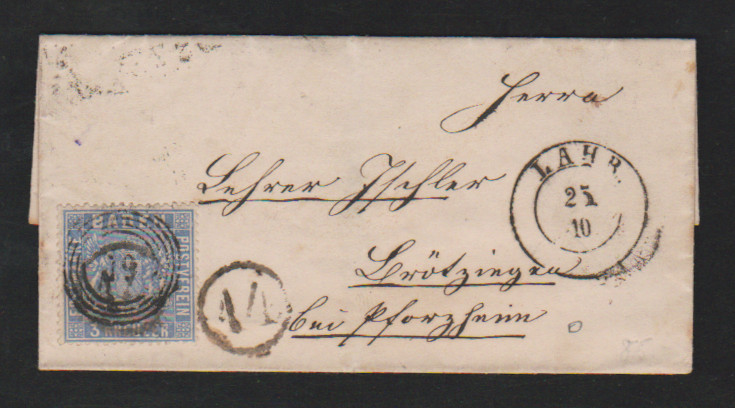 Herrn
Lehrer Ischler
Brötzingen
bei Pforzheim
LAHR.
25
10
14
POSTVEREIN
3 KREUZER